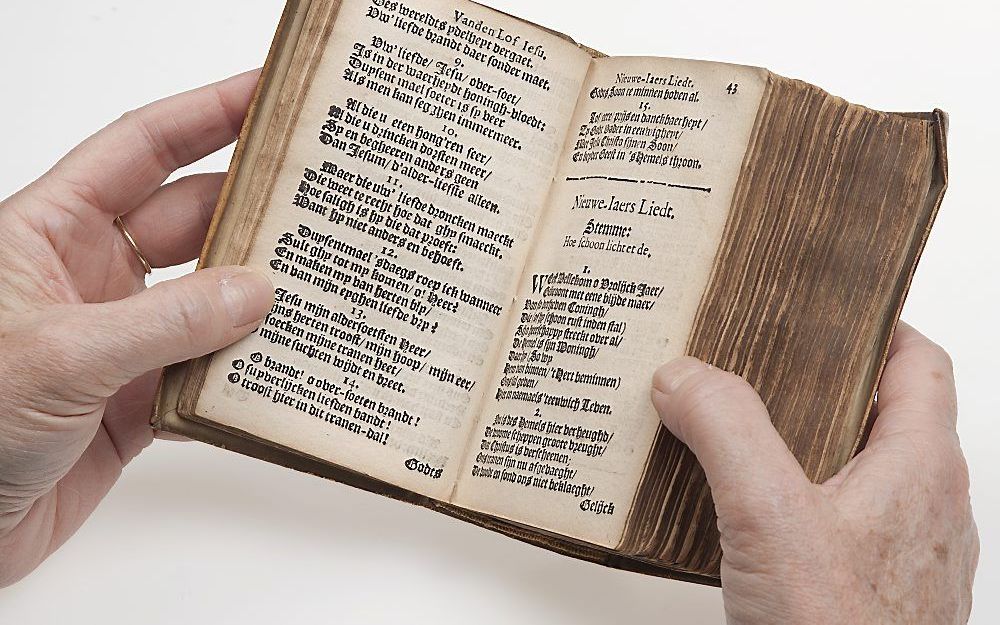 Vanden Lof Iesu.
Des wereldts ydelheyt vergaet.
Uw' liefde brandt daer sonder maet.
9.
Uw' liefde/ Jesu/ over-soet/
Is in der waerheydt honingh-vloedt:
Duysent mael soeter is sy veer
Als men kan seggen immermeer.
10.
Al die u eten hong'ren seer/
Al die u drincken dorsten meer/
Sy en begheeren anders geen
Dan Jesum/ d'alder-liefste alleen.
11.
Maer die uw' liefde droncken maeckt
Die weet te recht hoe dat ghy smaeckt.
Hoe saligh is hy die dat proeft:
Want hy niet anders en behoeft.
12.
Duysentmael 'sdaegs roep ick wanneer
Sult ghy tot my komen/ o! Heer?
En maken my van herten bly/
En van mijn eyghen liefde vry?
13.
Jesu mijn aldersoetsten Heer/
mijns herten troost/ mijn hoop/ mijn eer/
soecken mijne tranen heet/
mijne suchten wijdt en breet.
14.
O brandt! o over-soeten brandt!
O suyverlijcken liefden bandt!
O troost hier in dit tranen-dal!
Godes
Nieuwe-Iaers Liedt. 43
Godes Soon te minnen boven al.
15.
Lof/ eere prijs en danckbaerheyt/
Zy Godt Vader in eeuwigheyt/
Met Jesu Christo sijnen Soon/
En heyligh Geest in 'sHemels throon.
Nieuwe-Iaers Liedt.
Stemme:
Hoe schoon lichtet de.
1.
WEest Willekom o Vrolijck Jaer/
Gekroont met eene blijde maer/
Coningh/
Die schoon rust inden stal)
heerschappy streckt over al/
De Hemel is sijn Woningh/
binnen/ 't Hert beminnen)
geven/
Hier naemaels 'teeuwich Leven.
2.
des Hemels hier verheught/
De vroome scheppen groote vreught/
Christus is verscheenen:
tranen sijn nu afgevaeght/
De doodt en sond ons niet beklaeght/
Gelijck